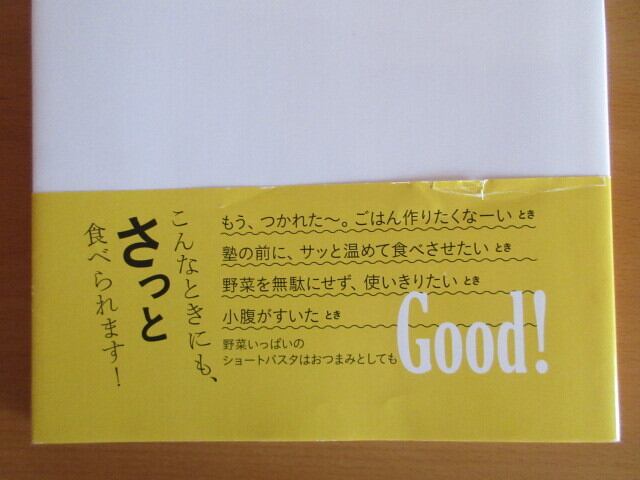 こんなときにも、
さっと
食べられます！
もう、つかれた〜。ごはん作りたくなーい とき
塾の前に、サッと温めて食べさせたい とき
野菜を無駄にせず、使いきりたい とき
小腹がすいた とき
野菜いっぱいの
ショートパスタはおつまみとしても
Good!